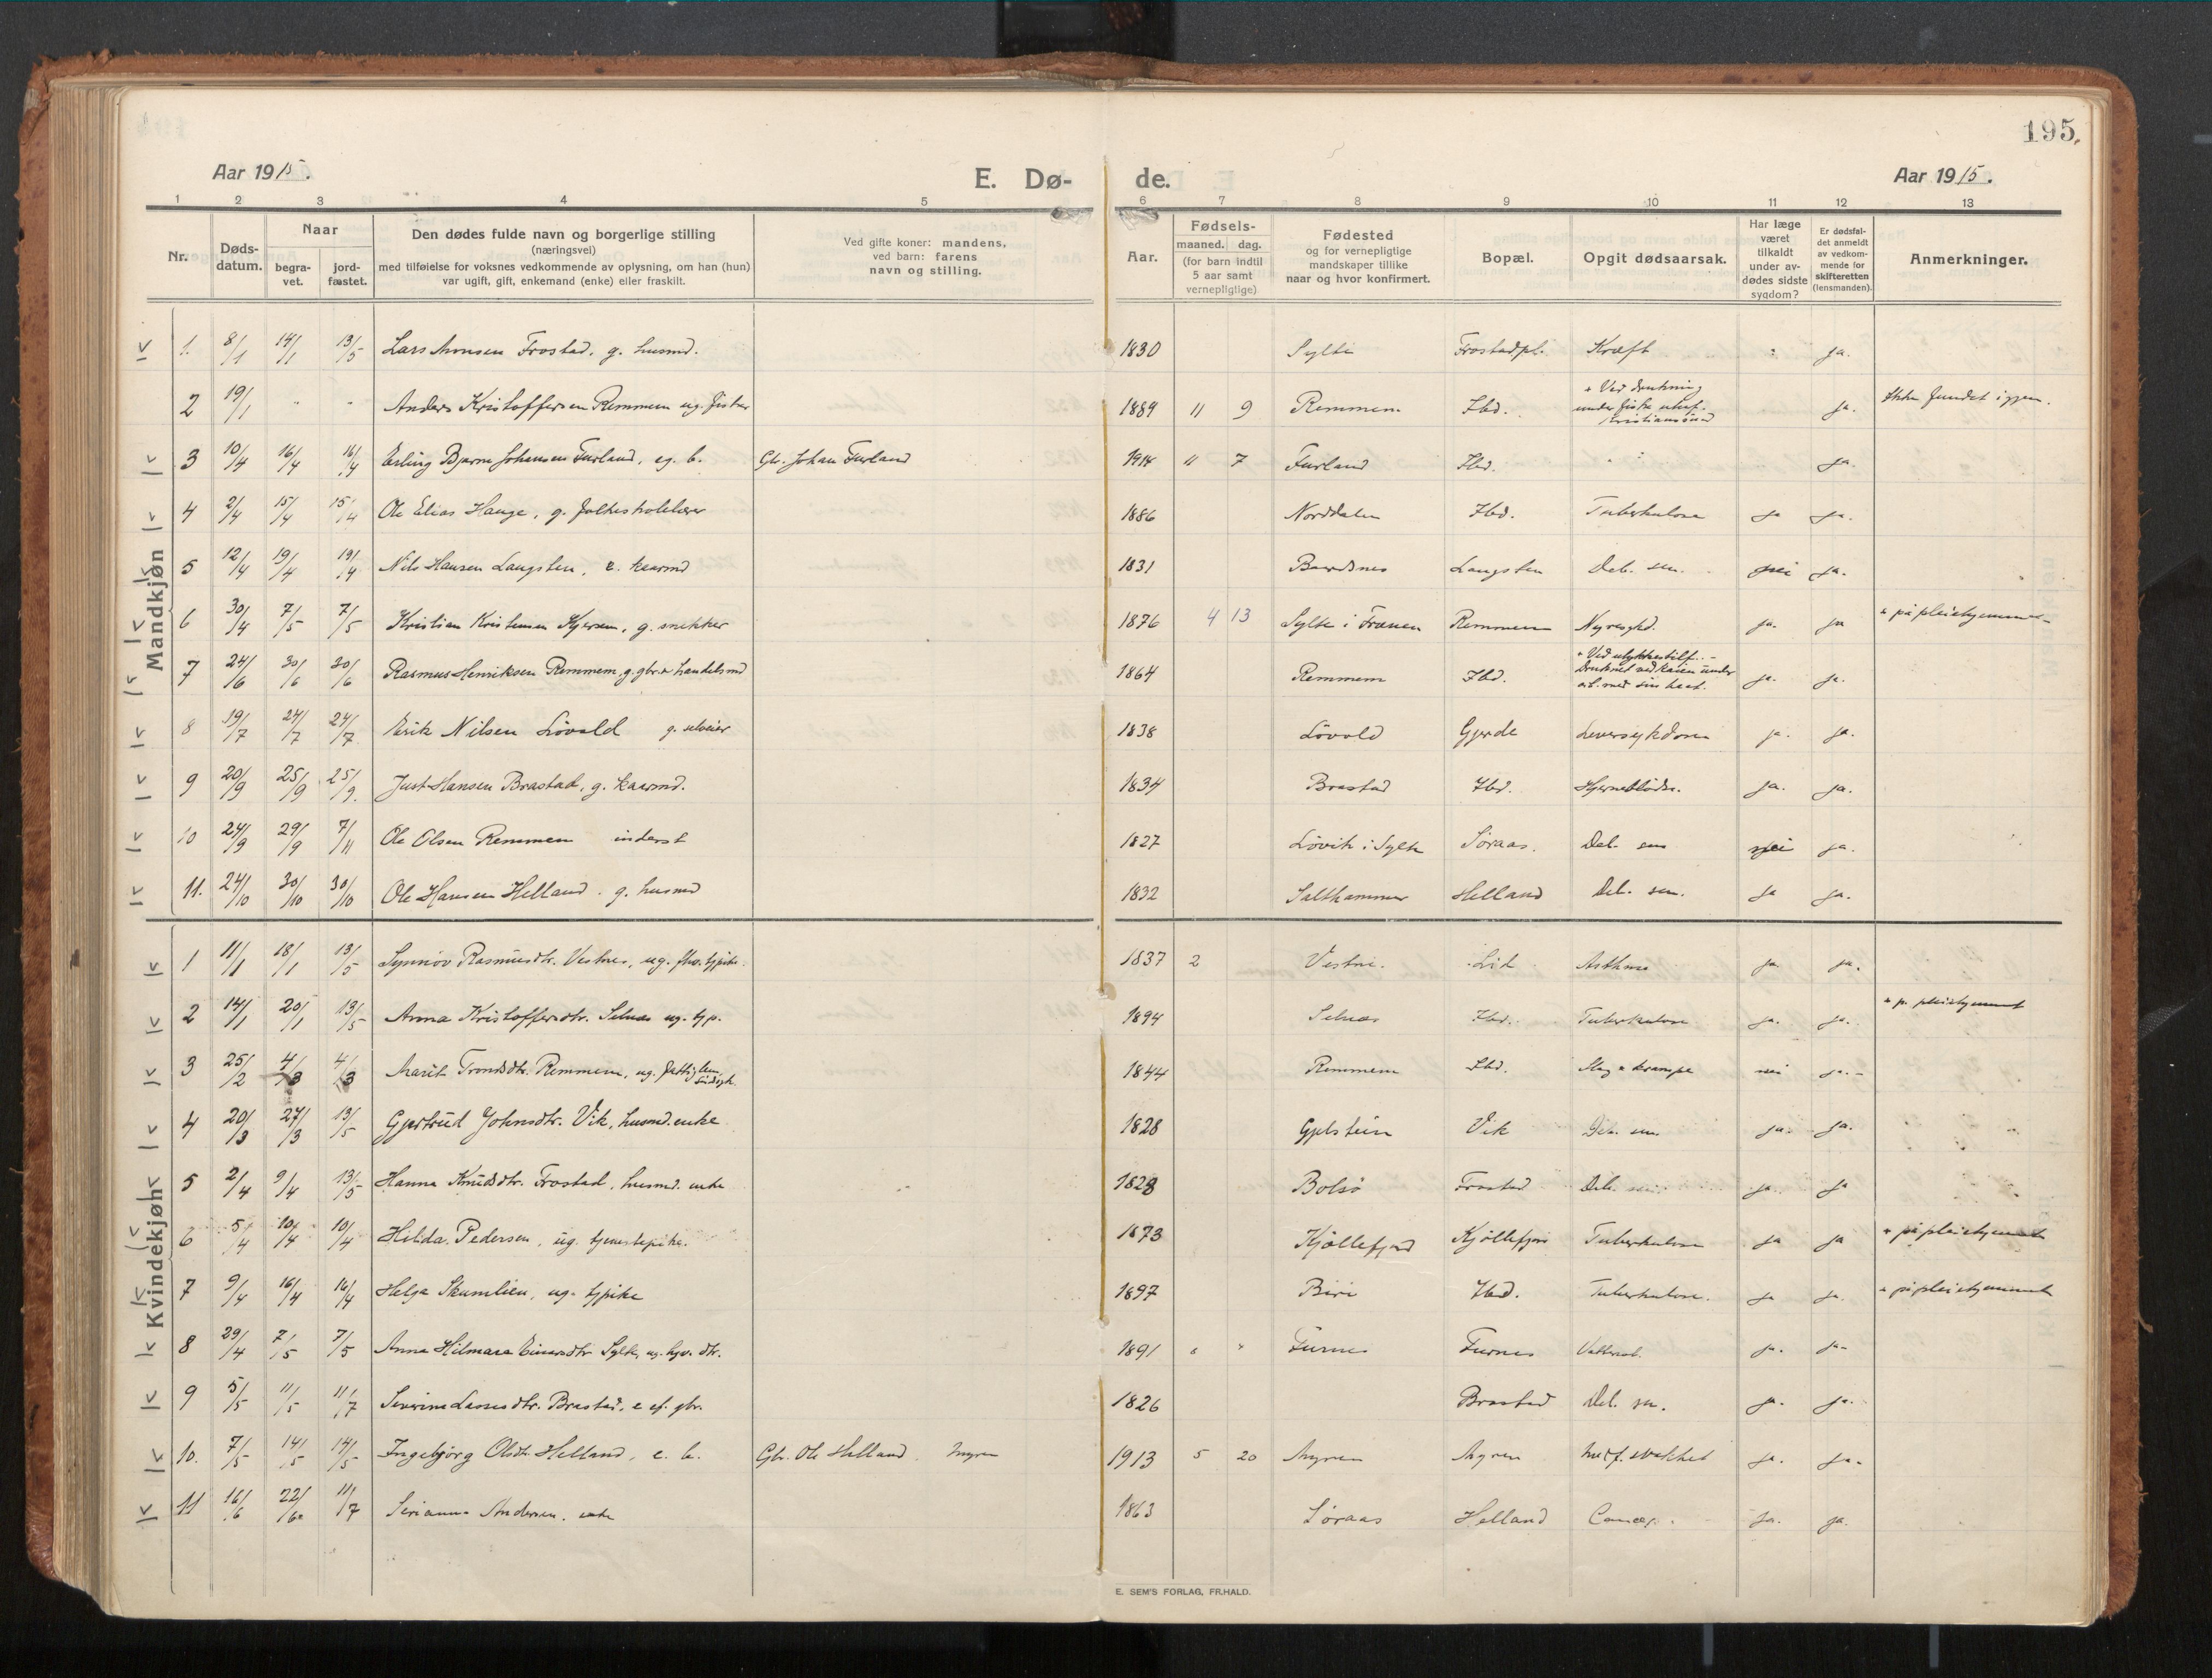 195.
Aar 1915.
E. Dø-
de.
Aar 1915.
1 2 3 4 5 6 7 8 9 10 11 12 13
Nr.
Døds-
datum.
Naar
begra-
vet.
jord-
fæstet.
Den dødes fulde navn og borgerlige stilling
(næringsvei)
med tilføielse for voksnes vedkommende av oplysning, om han (hun)
var ugift, gift, enkemand (enke) eller fraskilt.
Ved gifte koner: mandens,
ved barn: farens
navn og stilling.
Aar.
Fødsels-
maaned. dag.
(for barn indtil
5 aar samt
vernepligtige)
Fødested
og for vernepligtige
mandskaper tillike
naar og hvor konfirmert.
Bopæl.
Opgit dødsaarsak.
Har læge
været
tilkaldt
under av-
dødes sidste
sygdom?
Er dødsfal-
det anmeldt
av vedkom-
mende for
skifteretten
(lensmanden).
Anmerkninger.
Mandkjøn
1. 8/1 14/1 13/5 Lars Monsen Frostad, g. husmd. 1830 Sylte Frostadpl. Kræft " ja.
2 19/1 " " Anders Kristoffersen Remmem ug. fisker 1889 11 9 Remmem Ibd. + Ved drukning
under fiske utenf.
Kristiansund ja. Ikke fundet igjen.
3 10/4 16/4 16/4 Erling Bjarne Johansen Furland, eg. b. Gbr. Johan Furland 1914 11 7 Furland Ibd. " ja.
4 2/4 15/4 15/4 Ole Elias Hauge, g. folkeskolelærer 1886 Norddalen Ibd. Tuberkulose ja ja.
5 12/4 19/4 19/4 Nils Hansen Langsten, e. kaarmd 1831 Baardsnes Langsten Deb. sen. nei ja.
6 30/4 7/5 7/5 Kristian Kristensen Kjersem, g. snekker 1876 4 13 Sylte i Frænen Remmem Nyresykd. ja. ja + på pleiehjemmet
7 24/6 30/6 30/6 Rasmus Henriksen Remmem, g. gbr. & handelsmd 1864 Remmem Ibd. + Ved ulykkestilf. -
Druknet ved kaien under
arb. med sin baat. ja. ja.
8 19/7 24/7 24/7 Erik Nilsen Løvold g. selveier 1838 Løvold Gjerde Leversykdom ja. ja.
9 20/9 25/9 25/9. Just Hansen Brastad, g. kaarmd. 1834 Brastad Ibd. Hjerneblødn. ja. ja.
10 24/9 29/9 7/11 Ole Olsen Remmem inderst 1827 Løvik i Sylte Søraas. Deb. sen nei ja.
11. 24/10 30/10 30/10 Ole Hansen Helland. g. husmd 1832 Salthammer Helland Deb. sen. ja ja.
Kvindekjøn
1 11/1 18/1 13/5 Synnøv Rasmusdtr. Vestnes, ug. tjpike. 1837 2 Vestnes. Lid Asthma ja. ja.
2 14/1 20/1 13/5 Anna Kristoffersdtr. Selnæs ug. tjp. 1894 Selnæs Ibd. Tuberkulose ja. ja. + p. pleiehjemmet
3 25/2 4/3 4/3 Marit Trondsdtr. Remmem, ug. fattiglem, sindsyk. 1844 Remmem Ibd. Slag & krampe nei ja.-
4 20/3 27/3 13/5 Gjertrud Johnsdtr. Vik, husmd. enke 1828 Gjelstein Vik Deb. sen. ja. ja.
5 2/4 9/4 13/5 Hanna Knudsdtr. Frostad, husmd. enke 1828 Bolsø Frostad Deb. sen. ja. ja
6 5/4 10/4 10/4 Hilda Pedersen, ug. tjenestepike. 1873 Kjøllefjord Kjøllefjord Tuberkulose ja ja + på pleiehjemmet
7 9/4 16/4 16/4 Helga Skumlien, ug. tjpike 1897 Biri Ibd. Tuberkulose. ja ja. + på pleiehjemmet
8 29/4 7/5 7/5 Anna Hilmara Einarsdtr Sylte, ug. dtr. 1891 Furnes Furnes Vattersot. ja. ja-
9 5/5 11/5 11/7 Severine Lassesdtr. Brastad, e. ef. gbr. 1826 Brastad Deb. sen. ja. ja.
10. 7/5 14/5 14/5 Ingebjørg Olsdtr. Helland, e. b. Gbr. Ole Helland, Myren 1913 5 20 Myren Myren Medf. svakhet ja. ja.
11 16/6 22/6 11/7 Serianna Andersen. enke 1863 Søraas Helland Cancer. ja. ja.
E. SEM'S FORLAG, FR.HALD.